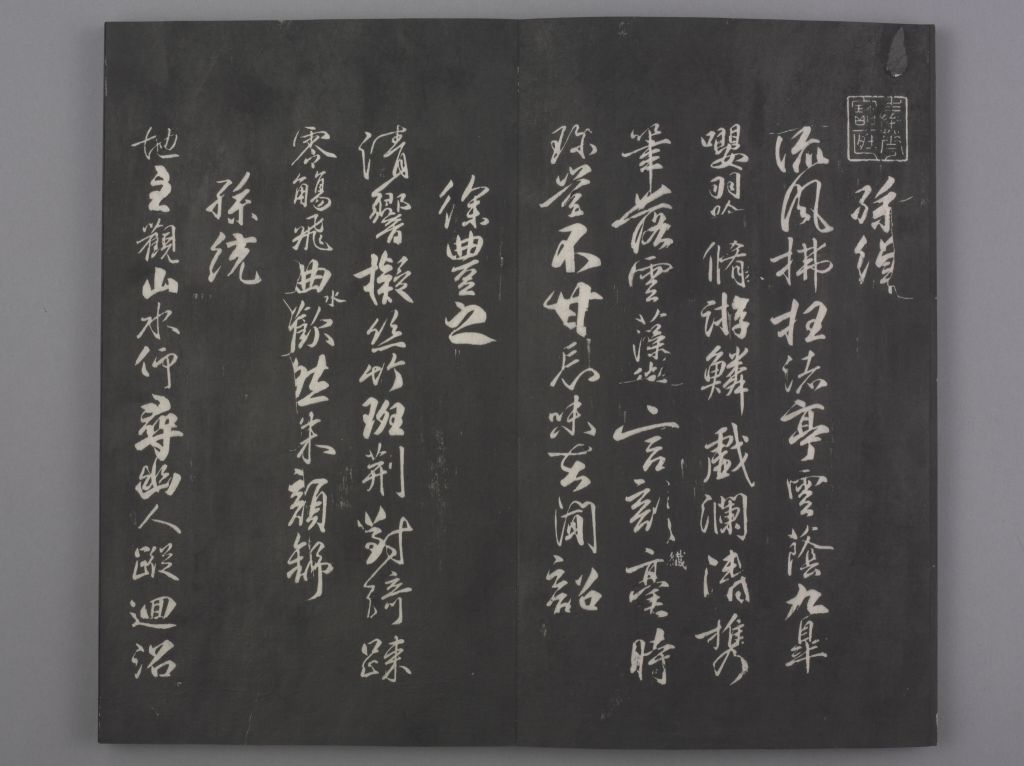 孫綽
流風拂枉渚亭雲蔭九皐
嚶羽吟脩游鱗戲瀾濤攜
筆落雲藻微言剖纖毫時
珎豈不甘忘味在聞韶
徐豐之
清響擬絲竹班荊對綺疎
零觴飛曲水歡然朱顏舒
孫統
地主觀山水仰尋幽人蹤迴沼